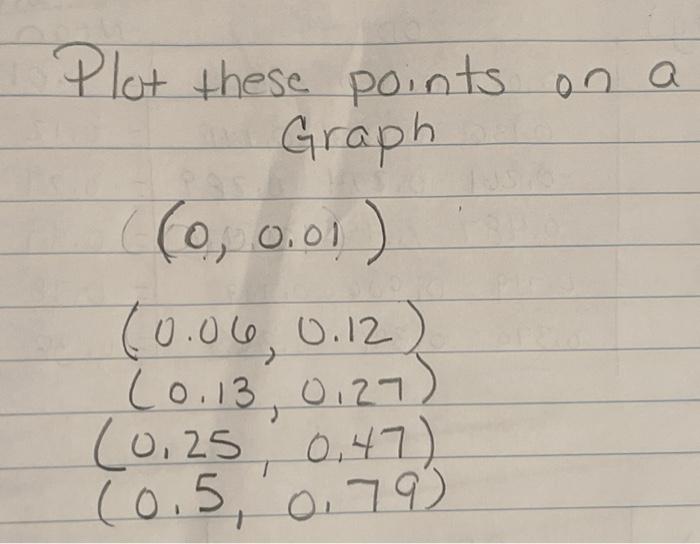 Plot these points on a
Graph
(0, 0.01)
(0.06, 0.12)
(0.13, 0.27)
(0.25, 0.47)
(0.5, 0.79)